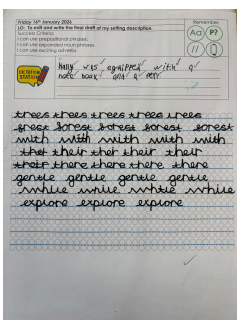 Friday 16th January 2026
LO: To edit and write the final draft of my setting description.
Success Criteria:
I can use prepositional phrases.
I can use expanded noun phrases.
I can use exciting adverbs.
Remember:
Aa P?
//
DICTATION STATION
Harry was equipped with a
note book and a pen.
trees trees trees trees trees
forest forest forest forest forest
with with with with with
their their their their their
their there there there there
gentle gentle gentle gentle
while while while while
explore explore explore